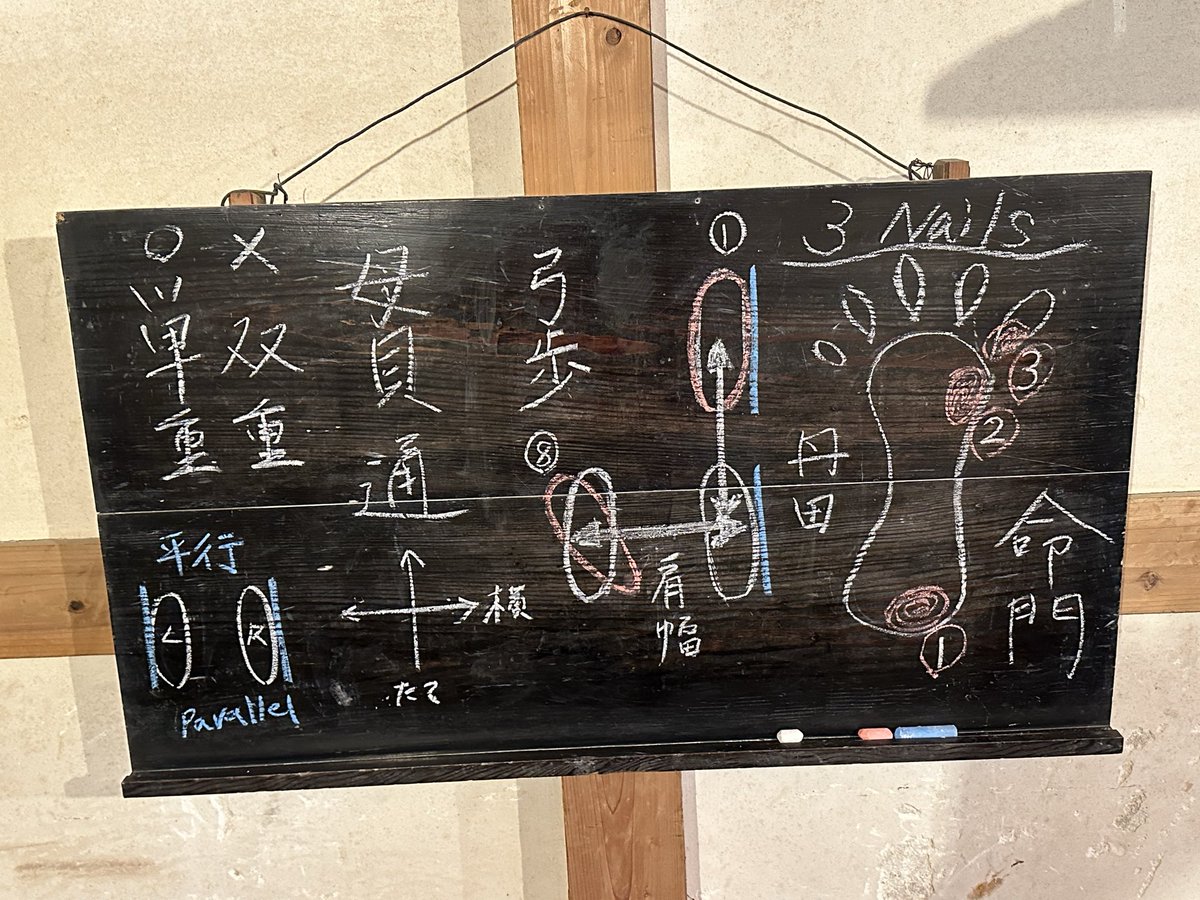 3 Nails
③
②
①
命門
丹田
①
弓歩
⑧
肩幅
貫通
横
たて
×双重
○単重
平行
L R
Parallel